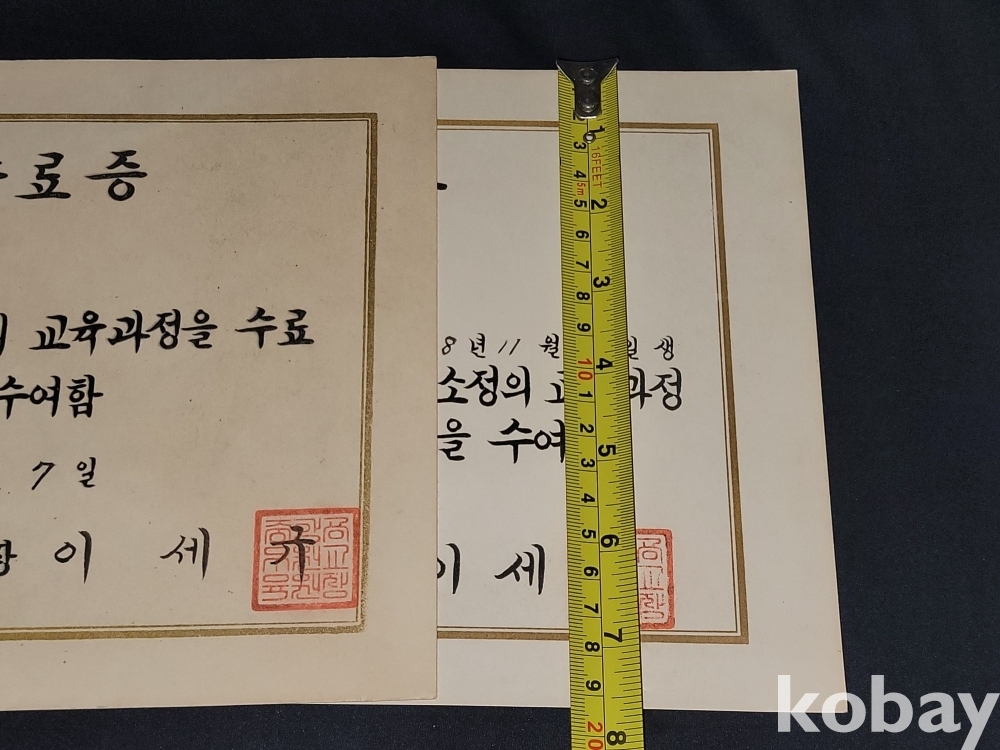 료증
교육과정을 수료
수여함
7 일
이 세 규
8년 11월
일생
소정의
과정
을 수여
이 세
16FEET
5m
1
2
3
4
5
6
7
8
2
3
4
5
6
7
8
9
10
1
2
3
4
5
6
7
8
9
20
kobay